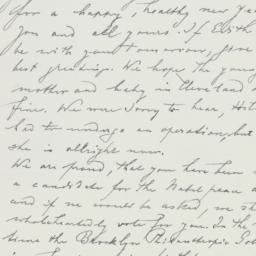 for a happy, healthy new Yea
you and all yours. If Edith
be with you tomorrow, give
best greetings. We hope the young
mother and baby in Cleveland a
fine. We were sorry to hear, Hil
had to undergo an operation, but
she is allright now.
We are proud, that you have been
a candidate for the Nobel peace
and if we would be asked, we sh
wholeheartedly vote for you. In the
time the Brooklyn Philanthropic